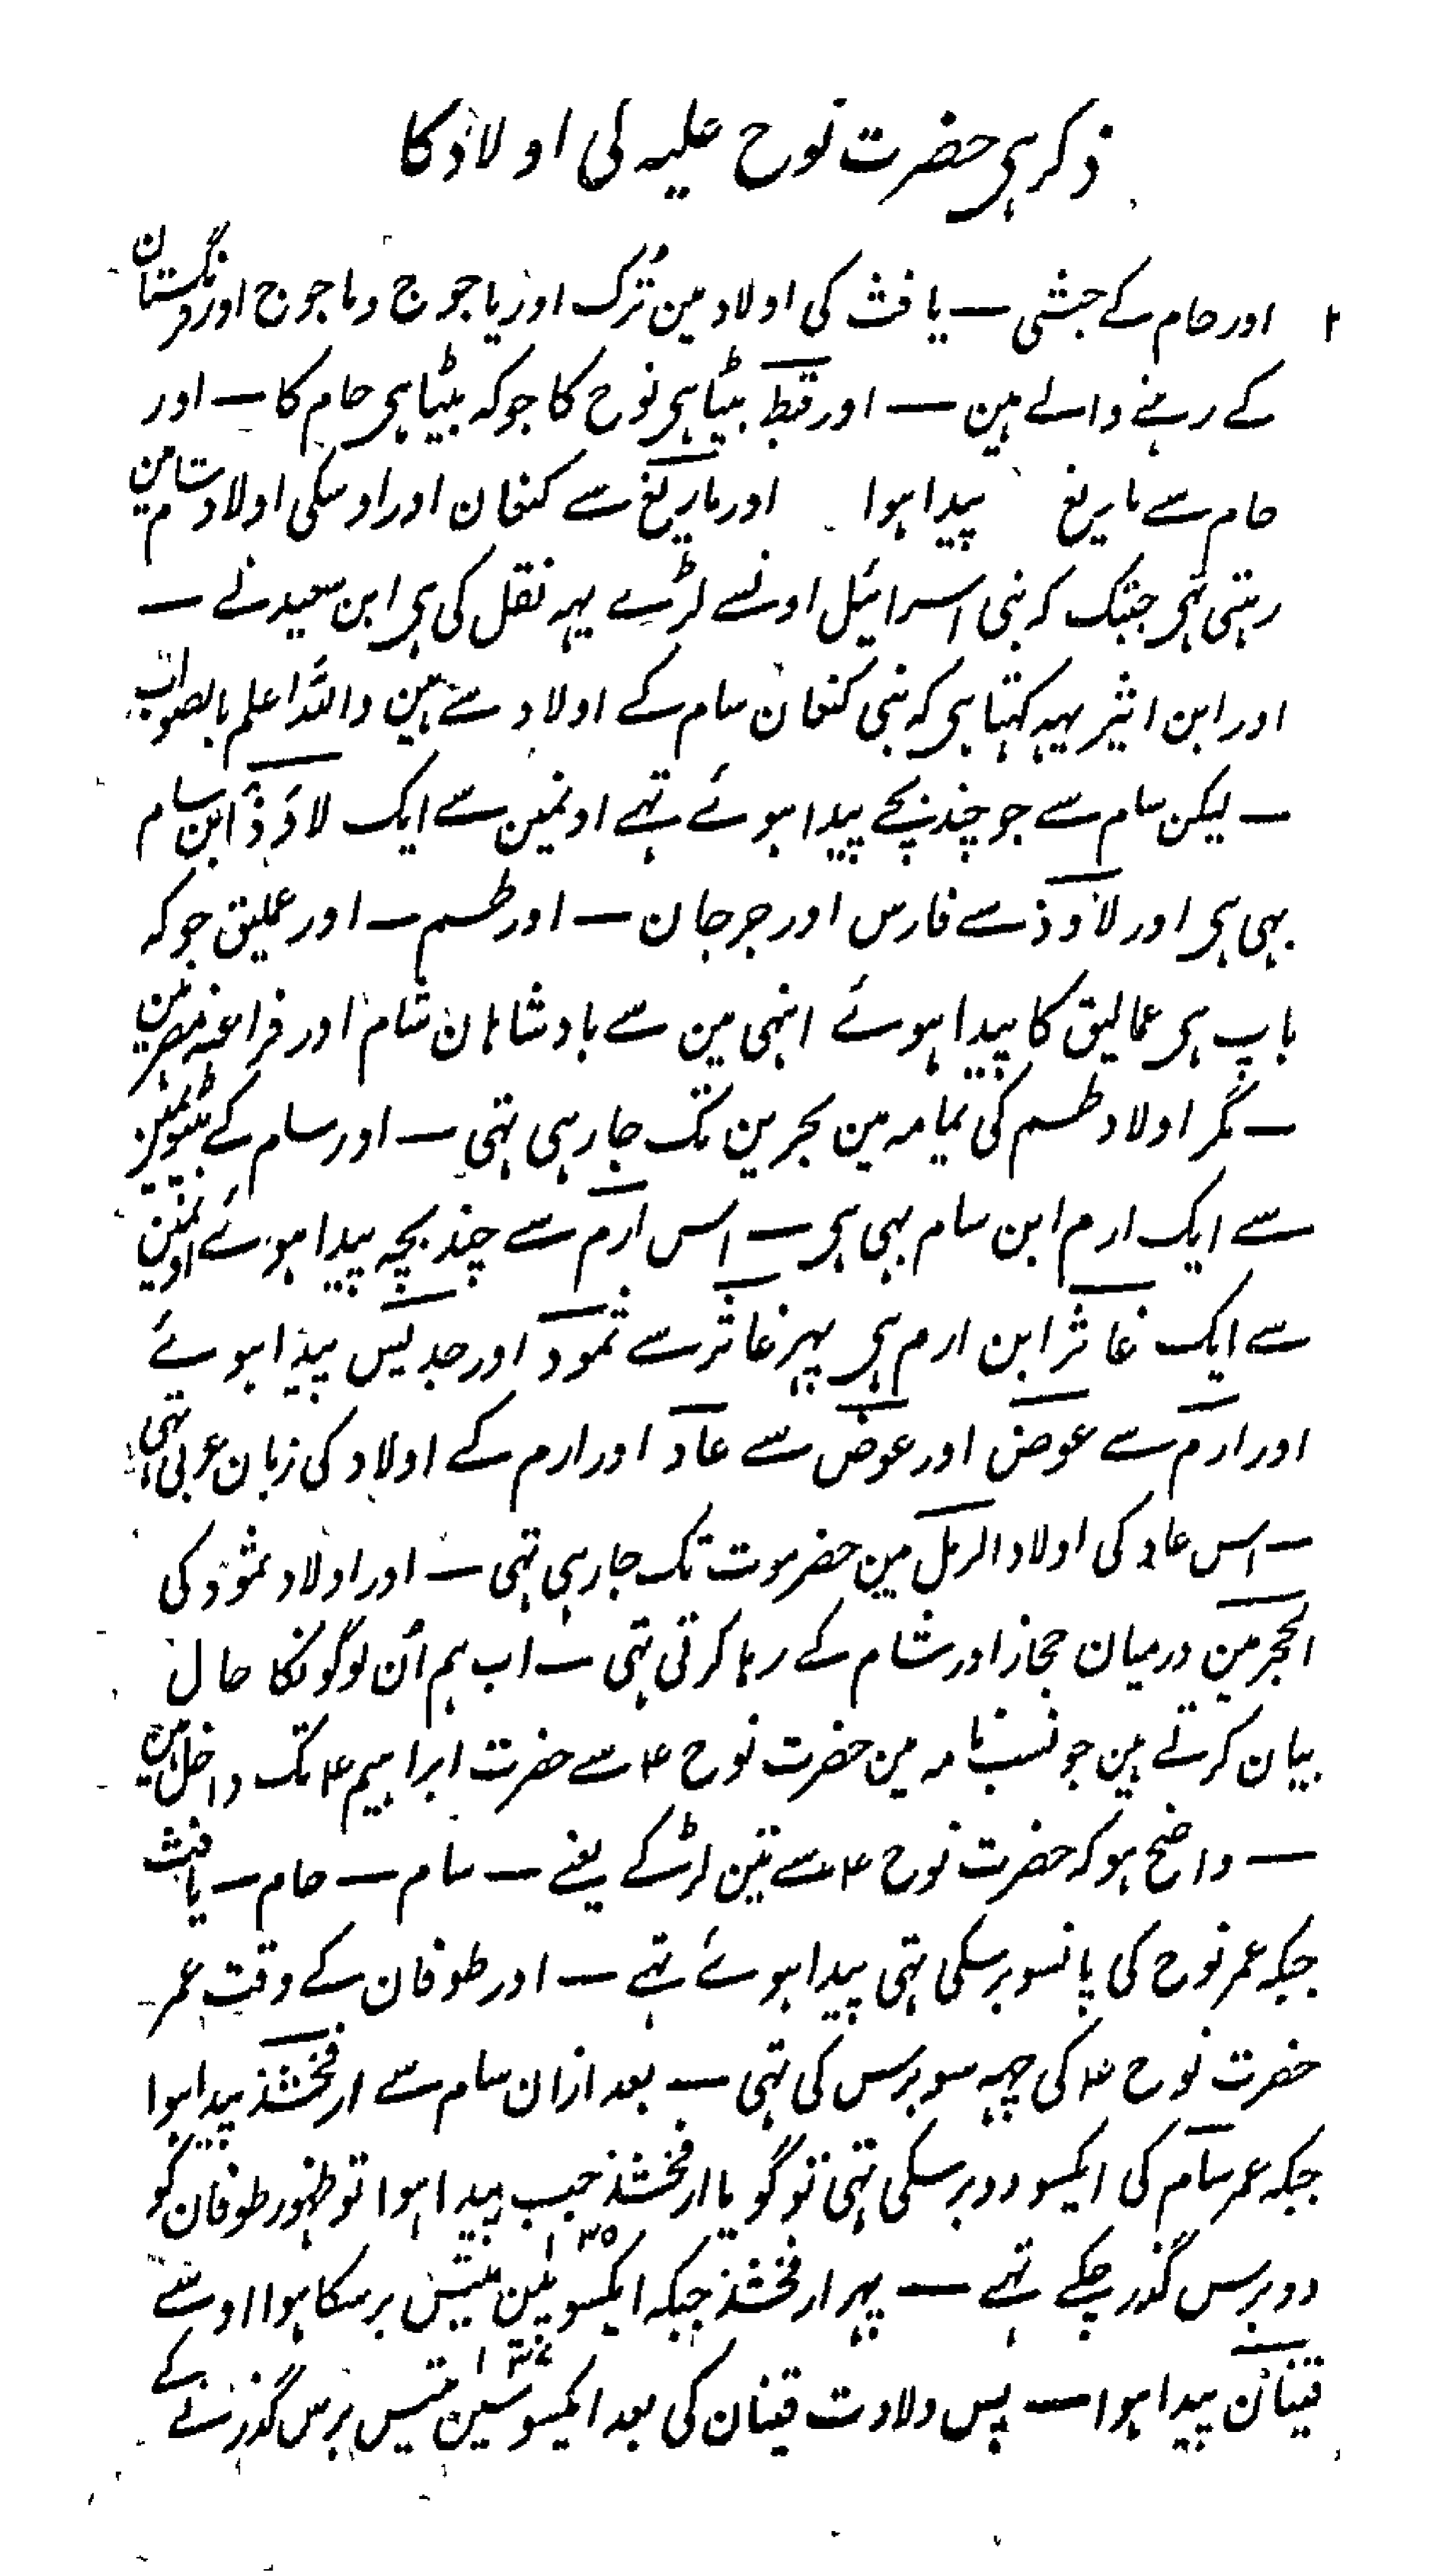 ذکر ہی حضرت نوح علیہ کی اولاد کا
اور حام کے حبشی — یافث کی اولاد مین تُرک اور یاجوج و ماجوج اور فرنگستان
کے رہنے والے ہین — اور قبط بیٹا ہی نوح کا جو کہ بیٹا ہی حام کا — اور
حام سے ماریغ پیدا ہوا اور ماریغ سے کنعان اور اوسکی اولاد شام مین
رہتی تہی جبتک کہ بنی اسرائیل اونسے لڑے یہہ نقل کی ہی ابن سعید نے —
اور ابن اثیر یہہ کہتا ہی کہ بنی کنعان سام کے اولاد سے ہین واللہ اعلم بالصواب
— لیکن سام سے جو چند بچے پیدا ہوئے تہے اونمین سے ایک لاوَذ ابن سام
بہی ہی اور لاوذ سے فارس اور جرجان — اور طسم — اور عملیق جو کہ
باپ ہی عمالیق کا پیدا ہوئے انہی مین سے بادشاہان شام اور فراعنہ مصر ہین
— مگر اولاد طسم کی یمامہ مین بحرین تک جا رہی تہی — اور سام کے بیٹونمین
سے ایک ارم ابن سام بہی ہی — اس ارم سے چند بچہ پیدا ہوئے اونمین
سے ایک غاثر ابن ارم ہی پہر غاثر سے ثمود اور جدیس پیدا ہوئے
اور ارم سے عوض اور عوض سے عاد اور ارم کے اولاد کی زبان عربی تہی
— اس عاد کی اولاد الرمل مین حضرموت تک جا رہی تہی — اور اولاد ثمود کی
الحجر مین درمیان حجاز اور شام کے رہا کرتی تہی — اب ہم اُن لوگونکا حال
بیان کرتے ہین جو نسب نامہ مین حضرت نوح ع سے حضرت ابراہیم ع تک داخل ہین
— واضح ہو کہ حضرت نوح ع سے تین لڑکے یعنے — سام — حام — یافث
جبکہ عمر نوح کی پانسو برسکی تہی پیدا ہوئے تہے — اور طوفان کے وقت عمر
حضرت نوح ع کی چہہ سو برس کی تہی — بعد ازان سام سے ارفخشذ پیدا ہوا
جبکہ عمر سام کی ایکسو دو برسکی تہی تو گویا ارفخشذ جب پیدا ہوا تو ظہور طوفان کو
دو برس گذر چکے تہے — پہر ارفخشذ جبکہ ایکسو پینتیس برسکا ہوا اوسے
قینان پیدا ہوا — پس ولادت قینان کی بعد ایکسو برس گذرنے کے